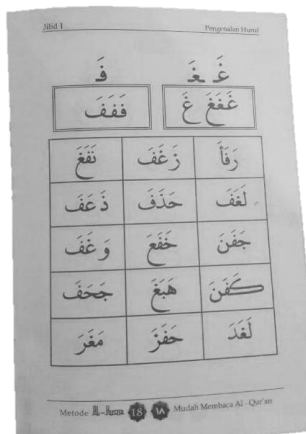 Jilid 1 Pengenalan Huruf
غَـ ـغَـ فَـ
غَغَغَ غَ فَفَفَ
رَفَأَ زَغَفَ نَفَغَ
لَغَفَ حَذَفَ ذَعَفَ
جَفَنَ خَفَعَ وَغَفَ
كَفَنَ هَبَغَ جَحَفَ
لَغَدَ حَفَزَ مَغَرَ
Metode 18 ١٨ Mudah Membaca Al - Qur'an